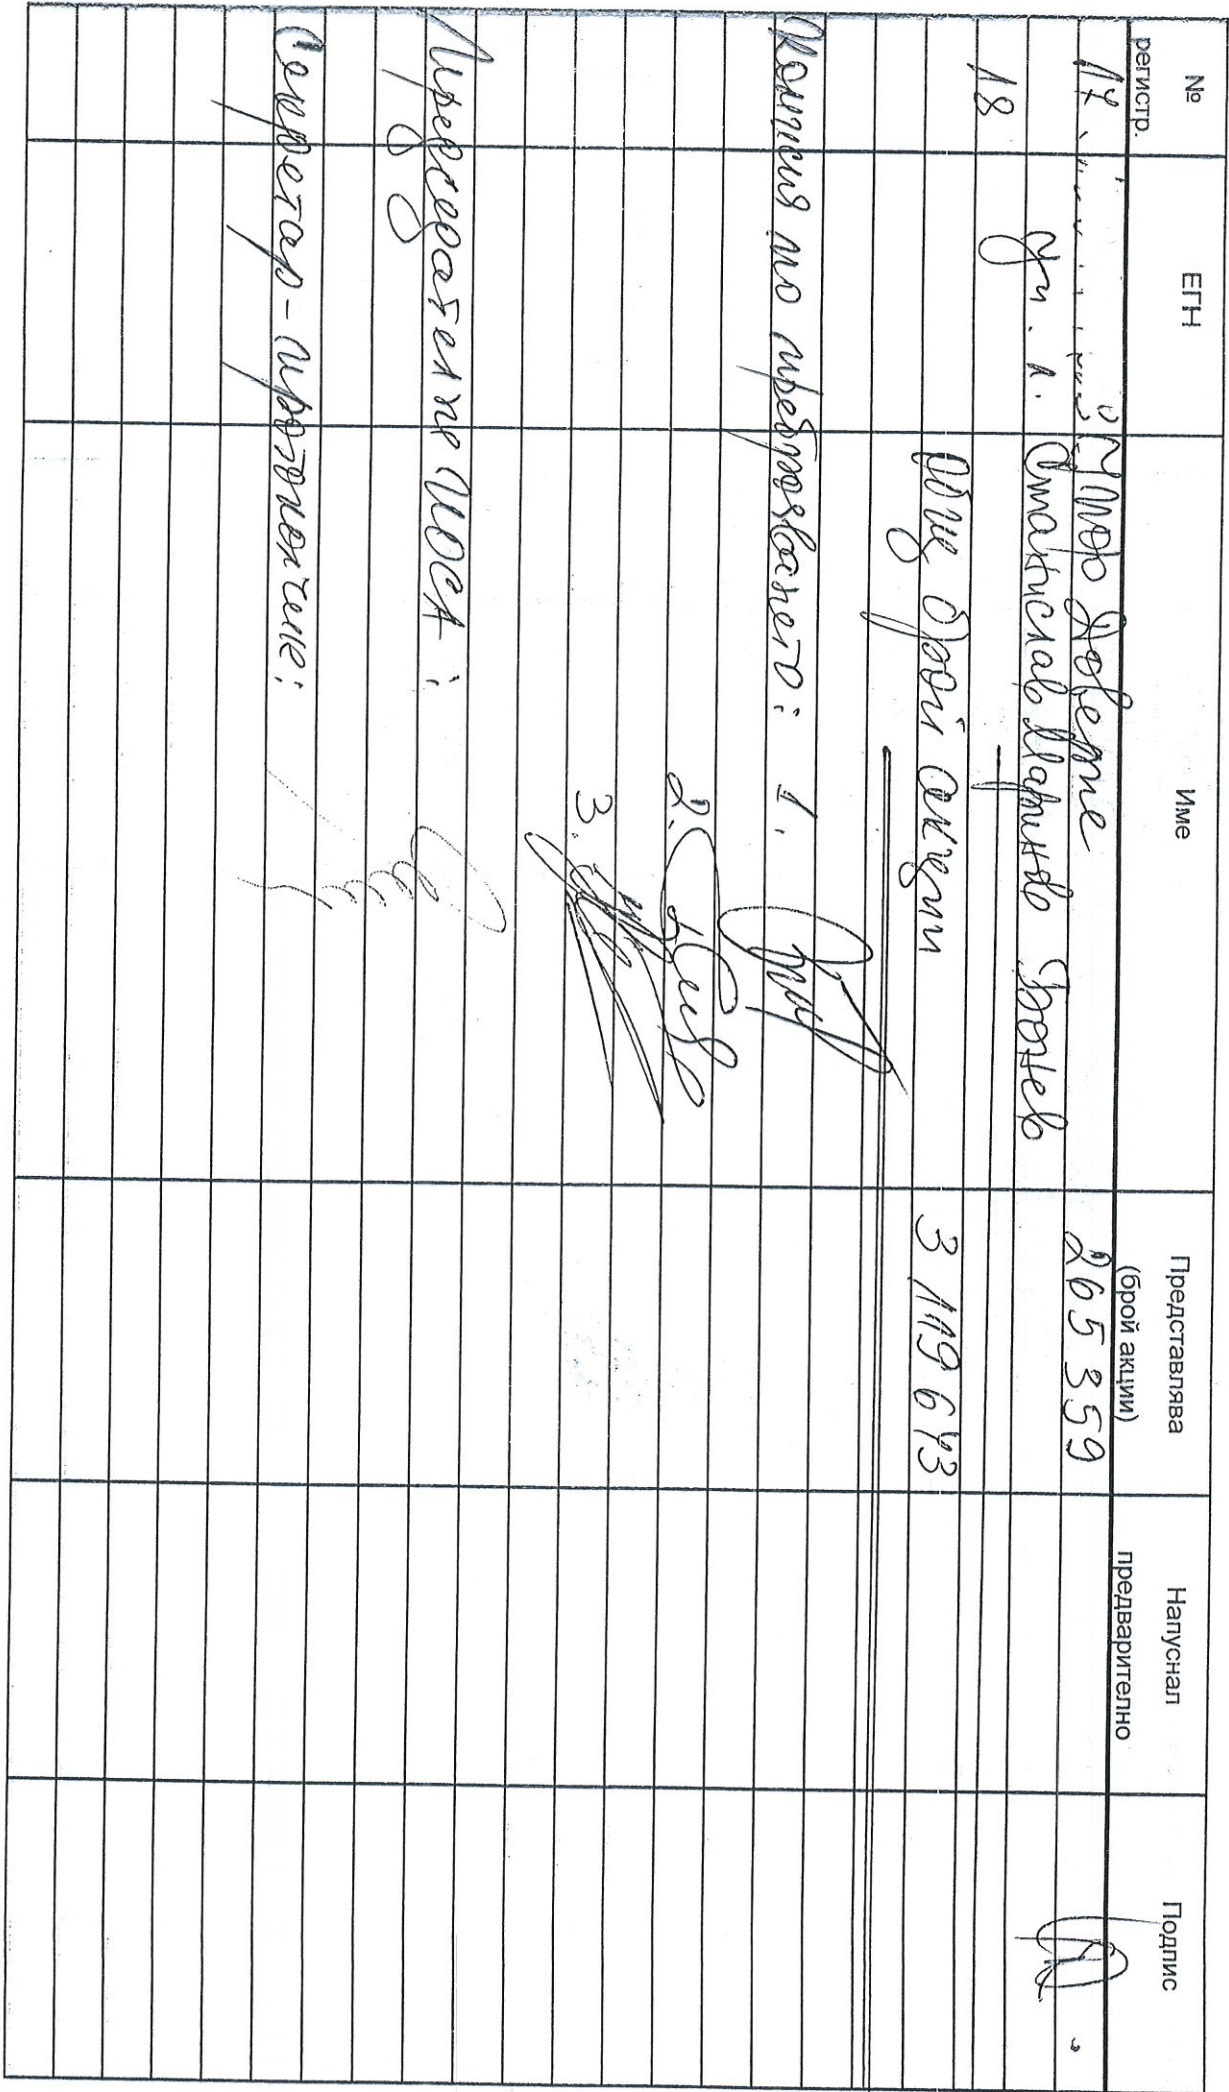 № регистр. ЕГН Име Представлява (брой акции) Напуснал предварително Подпис
17 Доверие 265 359
Станислав Маринов Божев
18
общ брой акции 3 119 673
Комисия по преброяването: 1.
2.
3.
Председател на ИОСА:
Секретар-протоколчик: